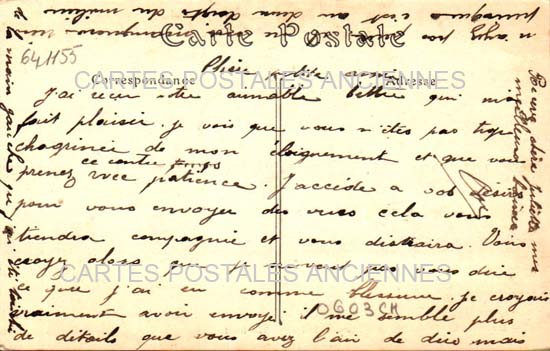 Carte Postale
641155
Correspondance
Adresse
CARTES POSTALES ANCIENNES
Chère petite amie
J'ai reçu votre aimable lettre qui m'a
fait plaisir. je vois que vous n'êtes pas trop
chagrinée de mon éloignement et que vous
prenez ce contre temps avec patience. J'accède à vos désirs
pour vous envoyer des vues cela vous
tiendra compagnie et vous distraira. Vous
croyez alors que je
vous dire
ce que j'ai eu comme blessure. je croyais
vraiment avoir envoyé il me semble plus
de détails que vous avez l'air de dire mais
CARTES POSTALES ANCIENNES
0603CH
à la main gauche
c'est au deux doigts du milieu